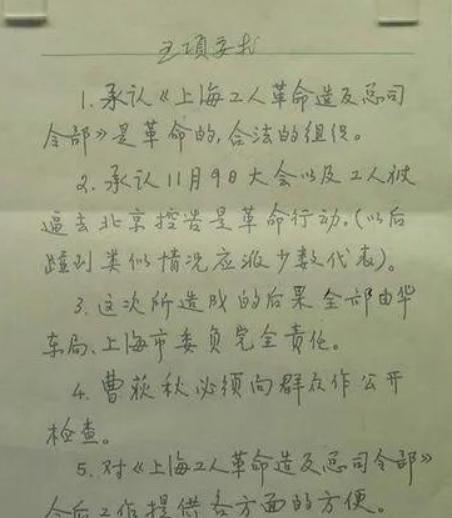 五项要求
1. 承认《上海工人革命造反总司
令部》是革命的,合法的组织。
2. 承认11月9日大会以及工人被
逼去北京控告是革命行动。(以后
碰到类似情况应派少数代表)。
3. 这次所造成的后果全部由华
东局、上海市委负完全责任。
4. 曹荻秋必须向群众作公开
检查。
5. 对《上海工人革命造反总司令部》
今后工作提供各方面的方便。